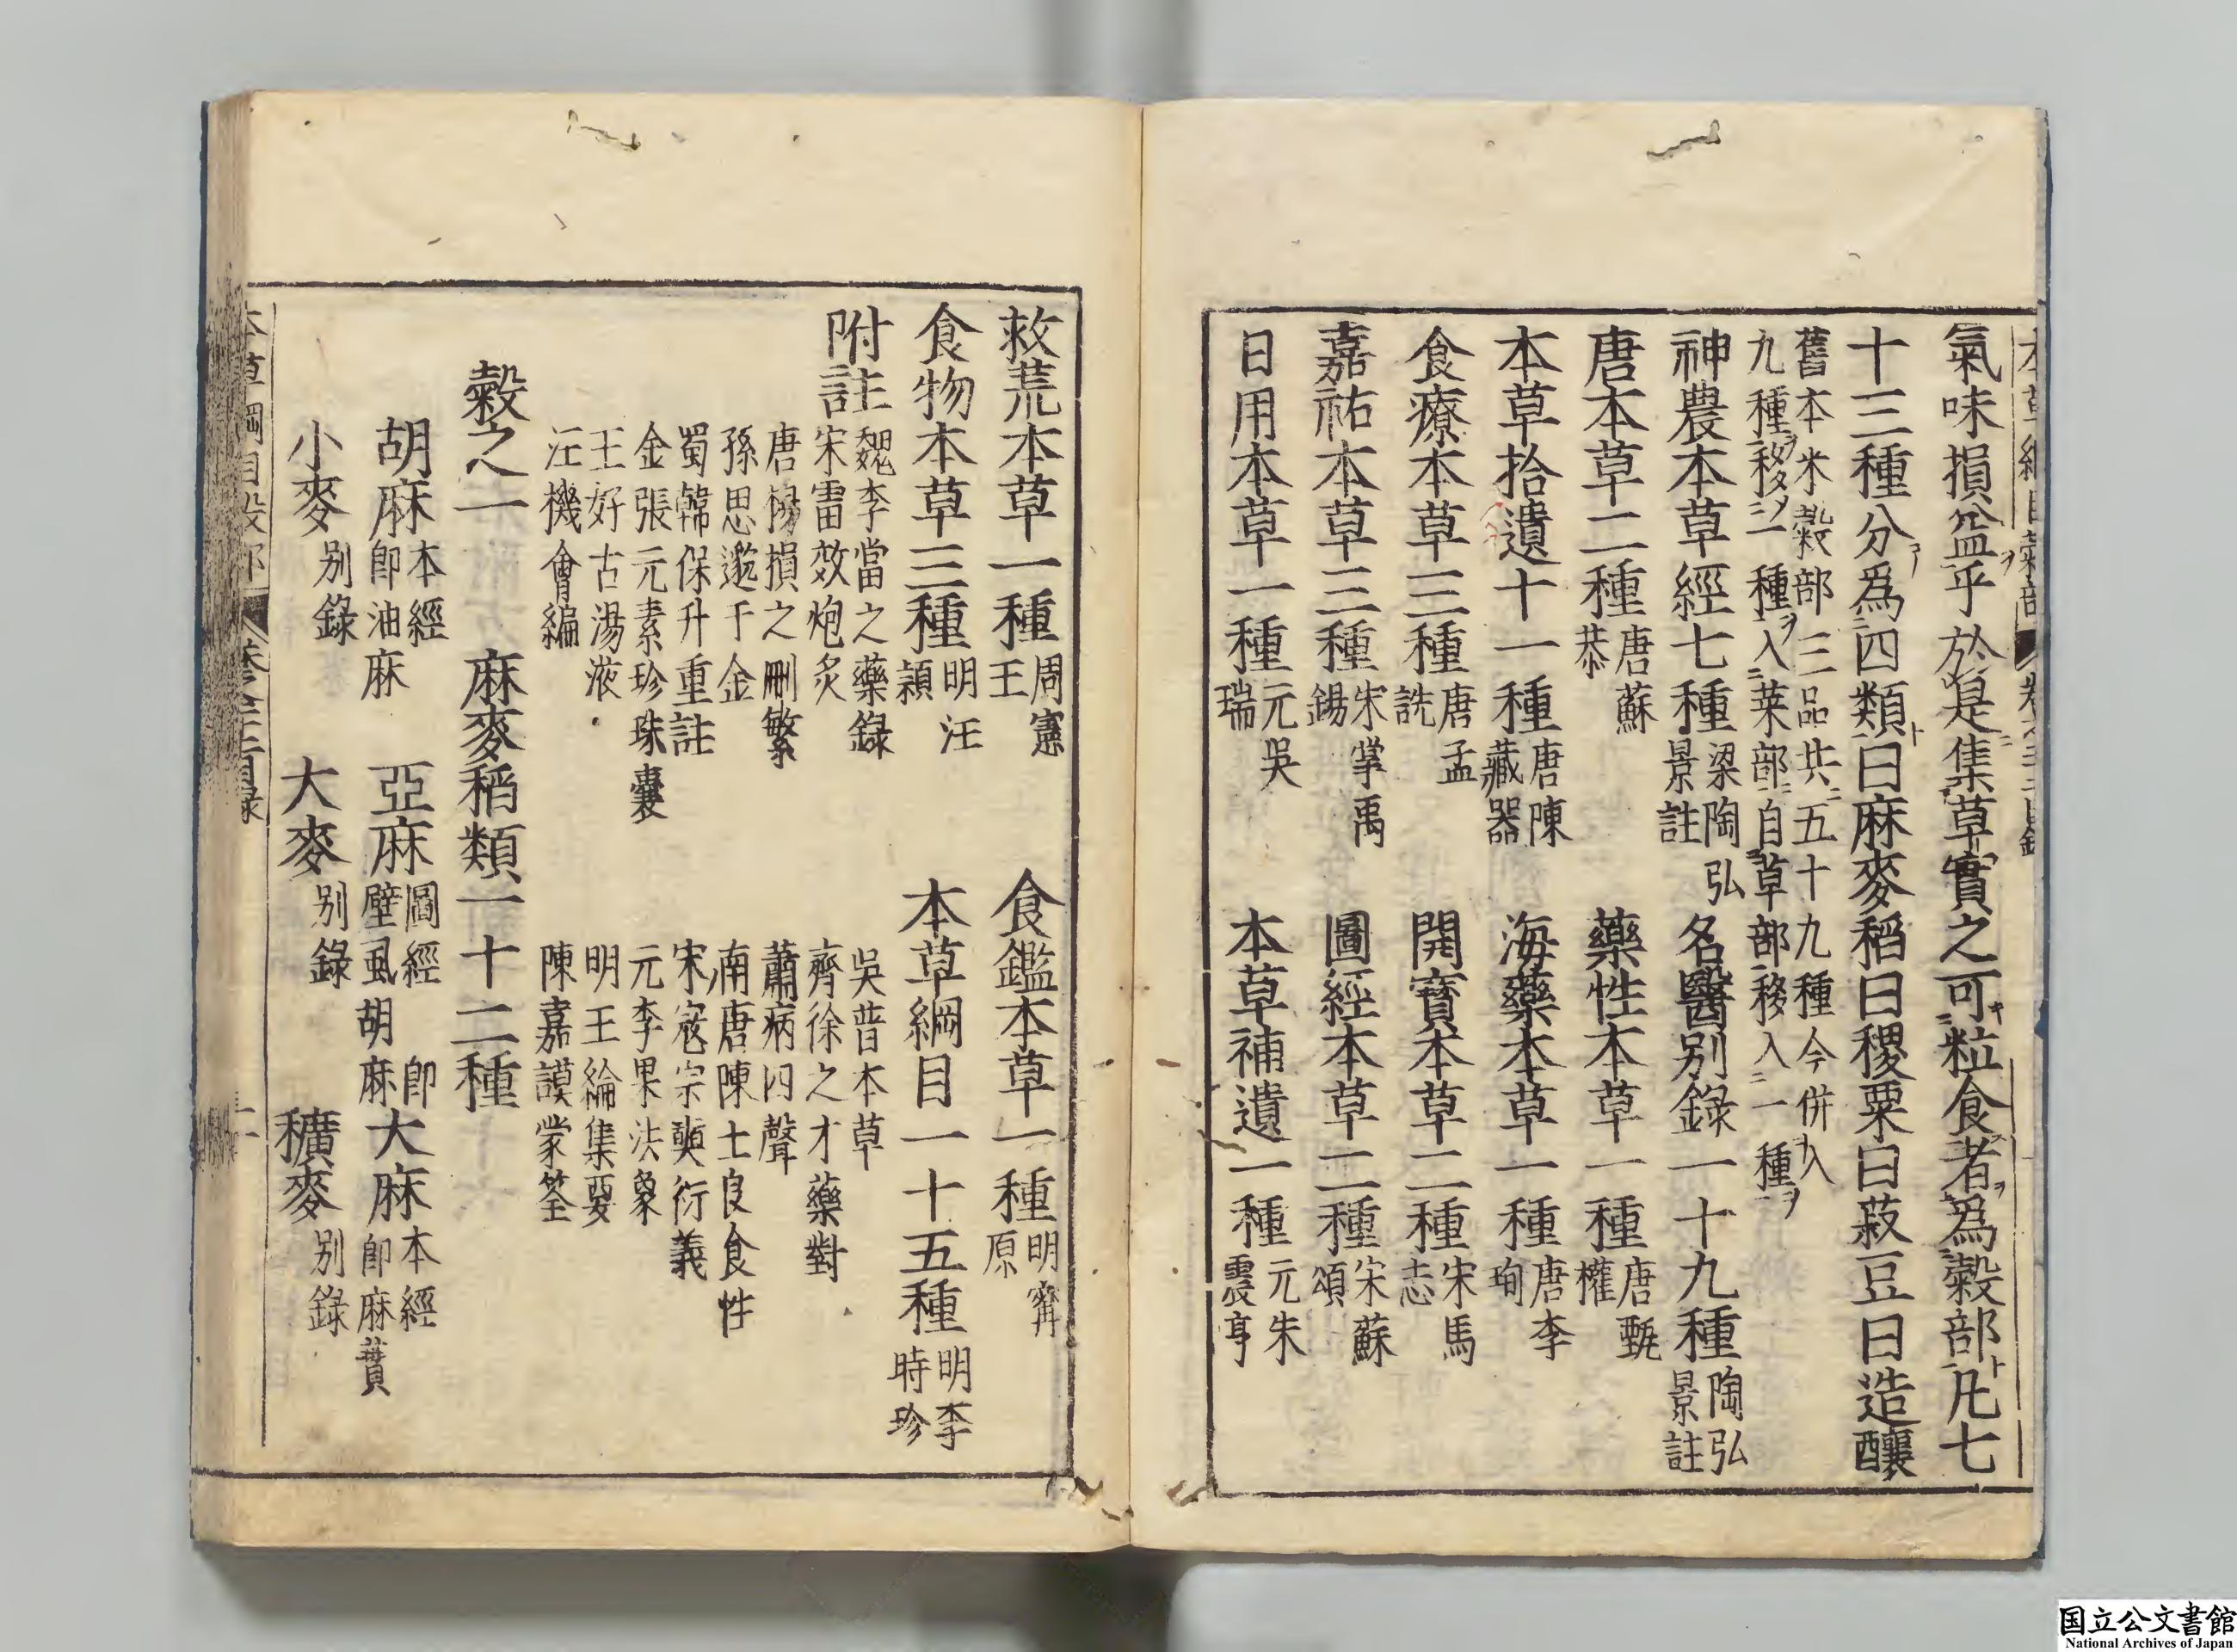 氣味損益乎於是集草實之可粒食者爲穀部凡七
十三種分爲四類曰麻麥稻曰稷粟曰菽豆曰造釀
舊本米穀部三品共五十九種今併入
九種移一種入菜部自草部移入一種
神農本草經七種梁陶弘景註 名醫別錄一十九種陶弘景註
唐本草二種唐蘇恭 藥性本草一種唐甄權
本草拾遺十一種唐陳藏器 海藥本草一種唐李珣
食療本草三種唐孟詵 開寶本草二種宋馬志
嘉祐本草三種宋掌禹錫 圖經本草二種宋蘇頌
日用本草一種元吳瑞 本草補遺一種元朱震亨
救荒本草一種周憲王 食鑑本草一種明甯原
食物本草三種明汪穎 本草綱目一十五種明李時珍
附註
魏李當之藥錄 吳普本草
宋雷斆炮炙 齊徐之才藥對
唐楊損之刪繁 蕭病四聲
孫思邈千金 南唐陳士良食性
蜀韓保升重註 宋寇宗奭衍義
金張元素珍珠囊 元李杲法象
王好古湯液 明王綸集要
汪機會編 陳嘉謨蒙筌
穀之一 麻麥稻類一十二種
胡麻本經即油麻 亞麻圖經壁虱胡麻 即大麻本經即麻蕡
小麥別錄 大麥別錄 穬麥別錄
本草綱目穀部 目錄 二
国立公文書館
National Archives of Japan